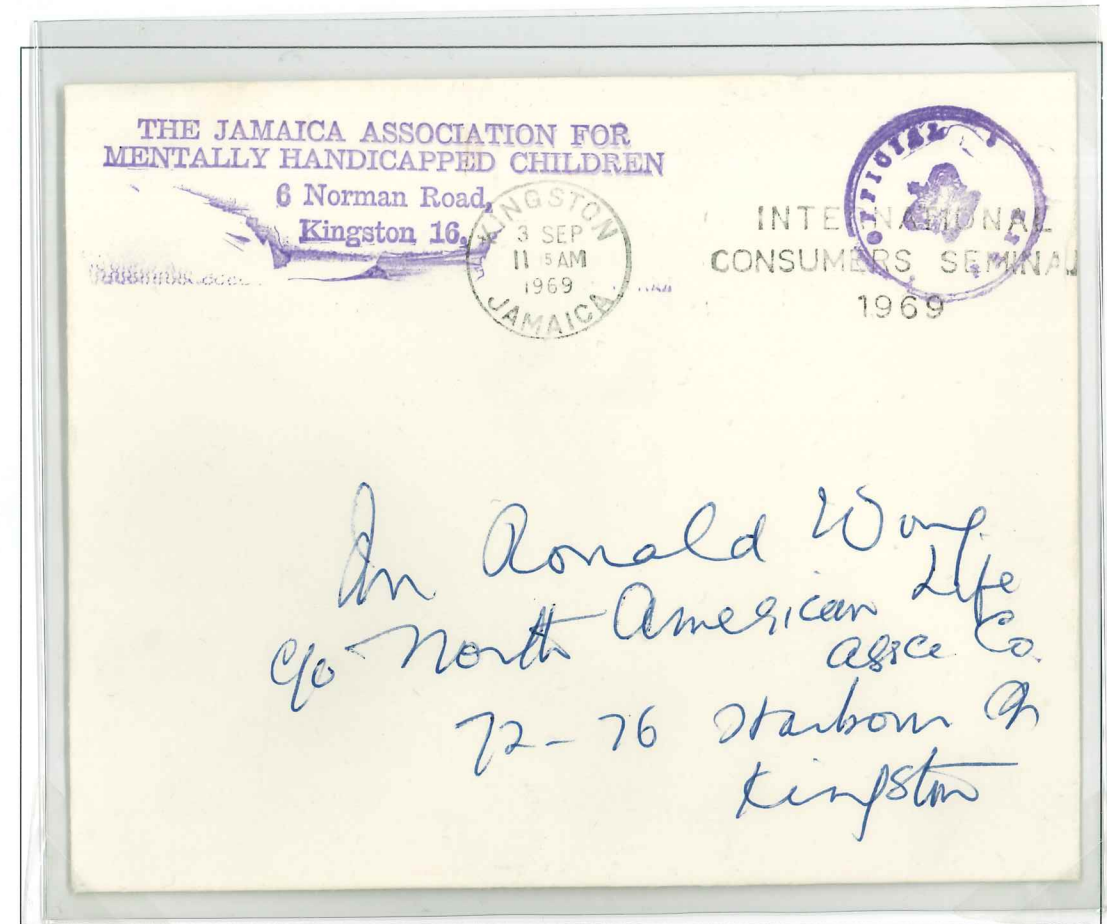 THE JAMAICA ASSOCIATION FOR
MENTALLY HANDICAPPED CHILDREN
6 Norman Road,
Kingston 16.
KINGSTON
3 SEP
11 5 AM
1969
JAMAICA
OFFICIAL
INTERNATIONAL
CONSUMERS SEMINAR
1969
Mr Ronald Wong.
c/o North American Life
Assce Co.
72-76 Harbour St
Kingston